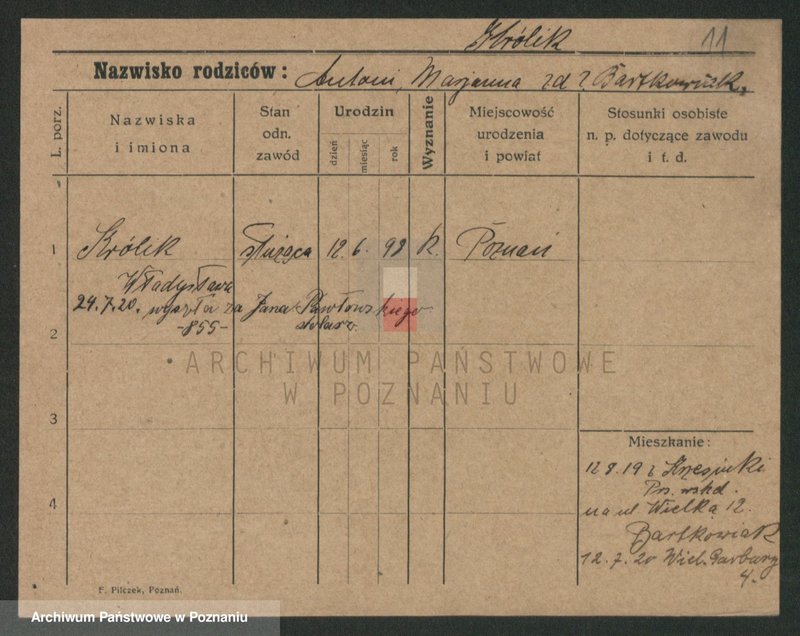 Królik 11
Nazwisko rodziców: Antoni, Marjanna z d z Bartkowiak.
L. porz.
Nazwiska i imiona
Stan odn. zawód
Urodzin
dzień miesiąc rok
Wyznanie
Miejscowość urodzenia i powiat
Stosunki osobiste n. p. dotyczące zawodu i t. d.
1 Królik służąca 12. 6. 98 k. Poznań
Władysława
24.7.20. wyszła za Jana Pawłowskiego
-855- stolarz.
2
ARCHIWUM PAŃSTWOWE
W POZNANIU
3
Mieszkanie:
12 8. 19 z
4
na ul Wielką 12.
Bartkowiak
12. 7. 20 Wiel. Garbary
4.
F. Pilczek, Poznań.
Archiwum Państwowe w Poznaniu